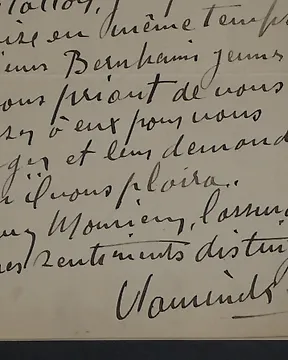 en même temps
Bernheim jeunes
ous priant de vous
à eux pour vous
ger et leur demand
il vous plaira.
Monsieur, l'assur
es sentiments disting